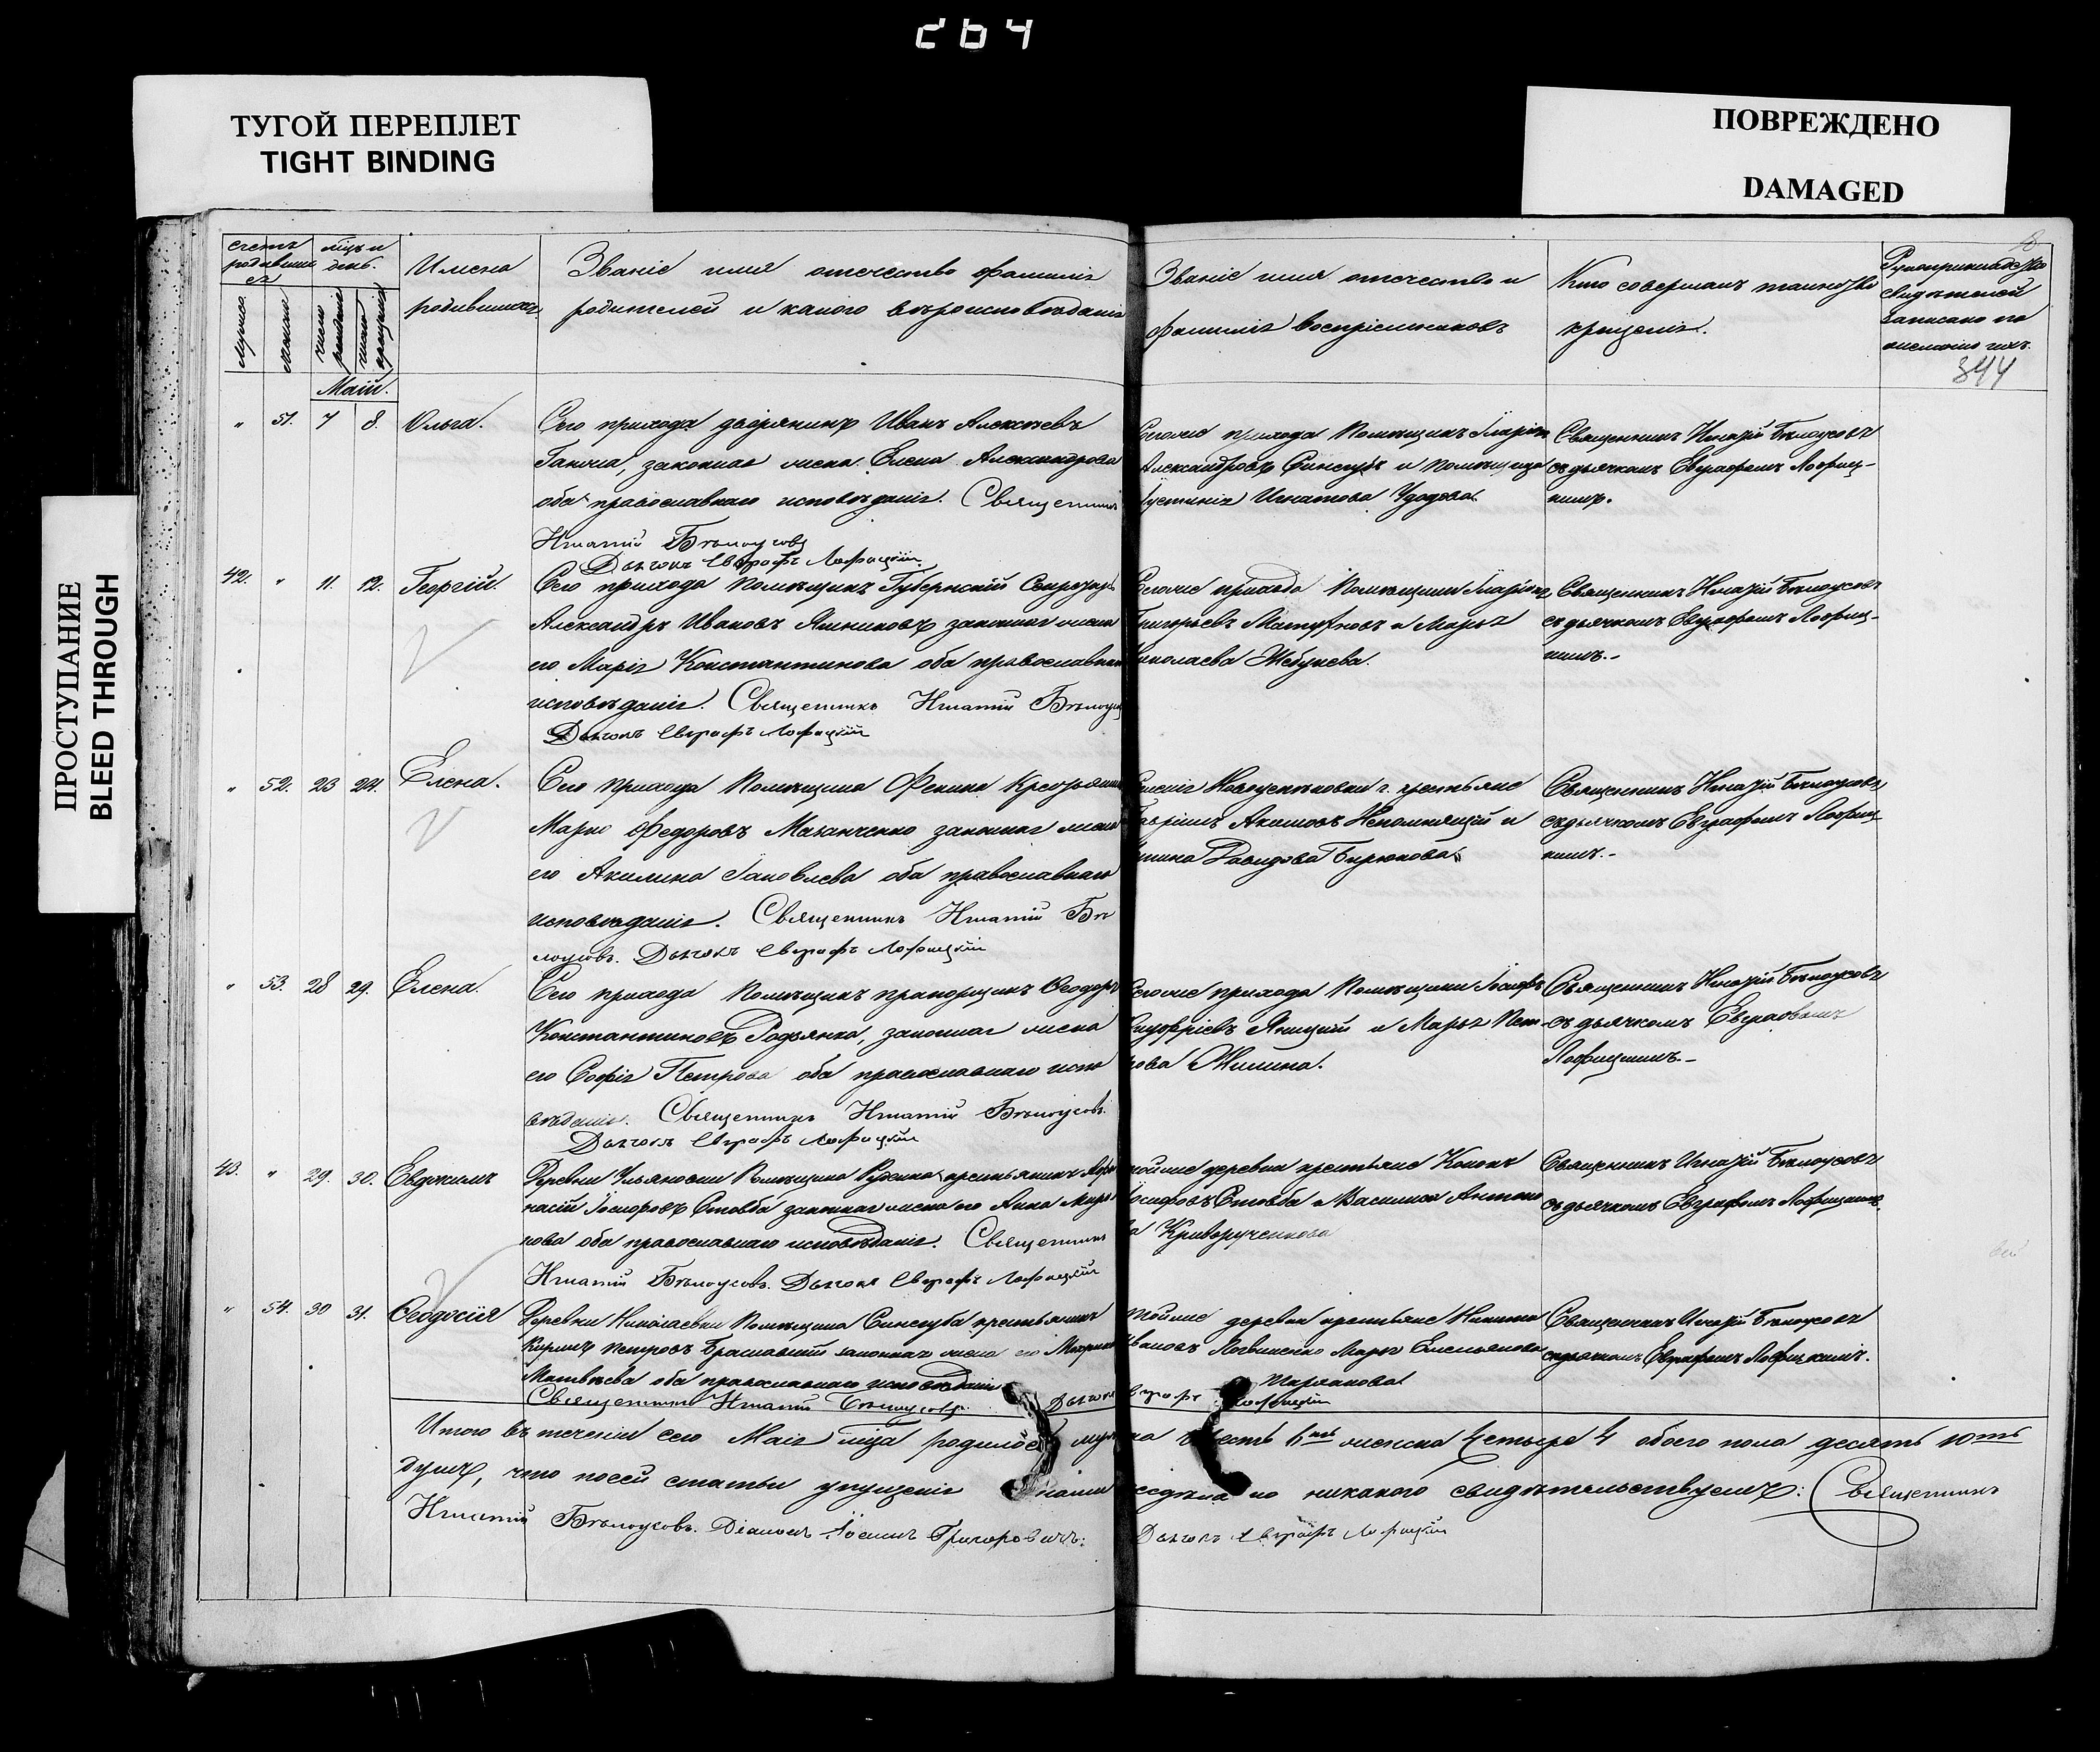 264
ТУГОЙ ПЕРЕПЛЕТ
TIGHT BINDING
ПОВРЕЖДЕНО
DAMAGED
ПРОСТУПАНИЕ
BLEED THROUGH
счетъ
родивших
ся
мѣсцъ и
день.
мужеска
женска
число рожденія
число крещенія
Имена
родившихся
Званіе имя отечество фамилія
родителей и какого вѣроисповѣданія
Званіе имя отечество и
фамилія воспріемниковъ
Кто совершалъ таинство
крещенія.
Рукоприкладство
свидѣтелей
записано по
желанію ихъ.
344
Маій.
" 51. 7 8. Ольга.
Сего прихода дворянинъ Иванъ Алексѣевъ
законная жена Елена Александрова
оба православнаго исповѣданія. Священникъ
Игнатій Бѣлоусовъ
Дьячокъ Евграфъ Лофицкій.
Сегоже прихода Помѣщикъ Иларіонъ
Александровъ Синегубъ и помѣщица
Іустинія Игнатова Удодова.
Священникъ Игнатій Бѣлоусовъ
съ дьячкомъ Евграфомъ Лофиц-
кимъ.
42. " 11. 12. Георгій.
Сего прихода Помѣщикъ Губернскій Секретарь
Александръ Ивановъ законная жена
его Марія Константинова оба православнаго
исповѣданія. Священникъ Игнатій Бѣлоусовъ
Дьячокъ Евграфъ Лофицкій
Сегоже прихода Помѣщики Иларіонъ
Григорьевъ и Марья
Николаева Жебунева.
Священникъ Игнатій Бѣлоусовъ
съ дьячкомъ Евграфомъ Лофиц-
кимъ.-
" 52. 23 24. Елена.
Сего прихода Помѣщика крестьянинъ
Марко Федоровъ Мазанченко законная жена
его Акилина Іаковлева оба православнаго
исповѣданія. Священникъ Игнатій Бѣ
лоусовъ. Дьячокъ Евграфъ Лофицкій
крестьяне
Гавріилъ Акимовъ Непомнящій и
Давидова Бирюкова
Священникъ Игнатій Бѣлоусовъ
съ дьячкомъ Евграфомъ Лофиц
кимъ.-
" 53. 28 29. Елена.
Сего прихода Помѣщикъ прапорщикъ Ѳеодоръ
Константиновъ Родзянка, законная жена
его Софія Петрова оба православнаго испо
вѣданія. Священникъ Игнатій Бѣлоусовъ.
Дьячокъ Евграфъ Лофицкій
Сегоже прихода Помѣщики Іосифъ
Онуфріевъ Яницкій и Марья Пет-
рова Жилина.
Священникъ Игнатій Бѣлоусовъ
съ дьячкомъ Евграфомъ
Лофицкимъ.-
43. " 29. 30. Евдокимъ
Деревни Ульяновки Помѣщика крестьянинъ Аѳа
насій Стовба законная жена его Анна Миро
нова оба православнаго исповѣданія. Священникъ
Игнатій Бѣлоусовъ. Дьячокъ Евграфъ Лофицкій
тойже деревни крестьяне Кононъ
Іосифовъ Стовба и Василиса Антоно
ва Криворученкова
Священникъ Игнатій Бѣлоусовъ
съ дьячкомъ Евграфомъ Лофицкимъ.
" 54. 30 31. Ѳеодосія
Деревни Николаевки Помѣщика Синегуба крестьянинъ
Кирилъ Петровъ Браславскій законная жена его Марина
Матвѣева оба православнаго исповѣданія
Священникъ Игнатій Бѣлоусовъ. Дьячокъ Евграфъ Лофицкій
тойже деревни крестьяне Никита
Ивановъ Логвиненко Марья Емельянова
Священникъ Игнатій Бѣлоусовъ
съ дьячкомъ Евграфомъ Лофицкимъ.
Итого въ теченіи сего Маія мѣсца родилось мужеска шесть 6ть женска четыре 4 обоего пола десять 10ть
душъ, что посей статьи упущенія нами сдѣлано никакого свидѣтельствуемъ: Священникъ
Игнатій Бѣлоусовъ. Діаконъ Григоровичъ: Дьячокъ Евграфъ Лофицкій